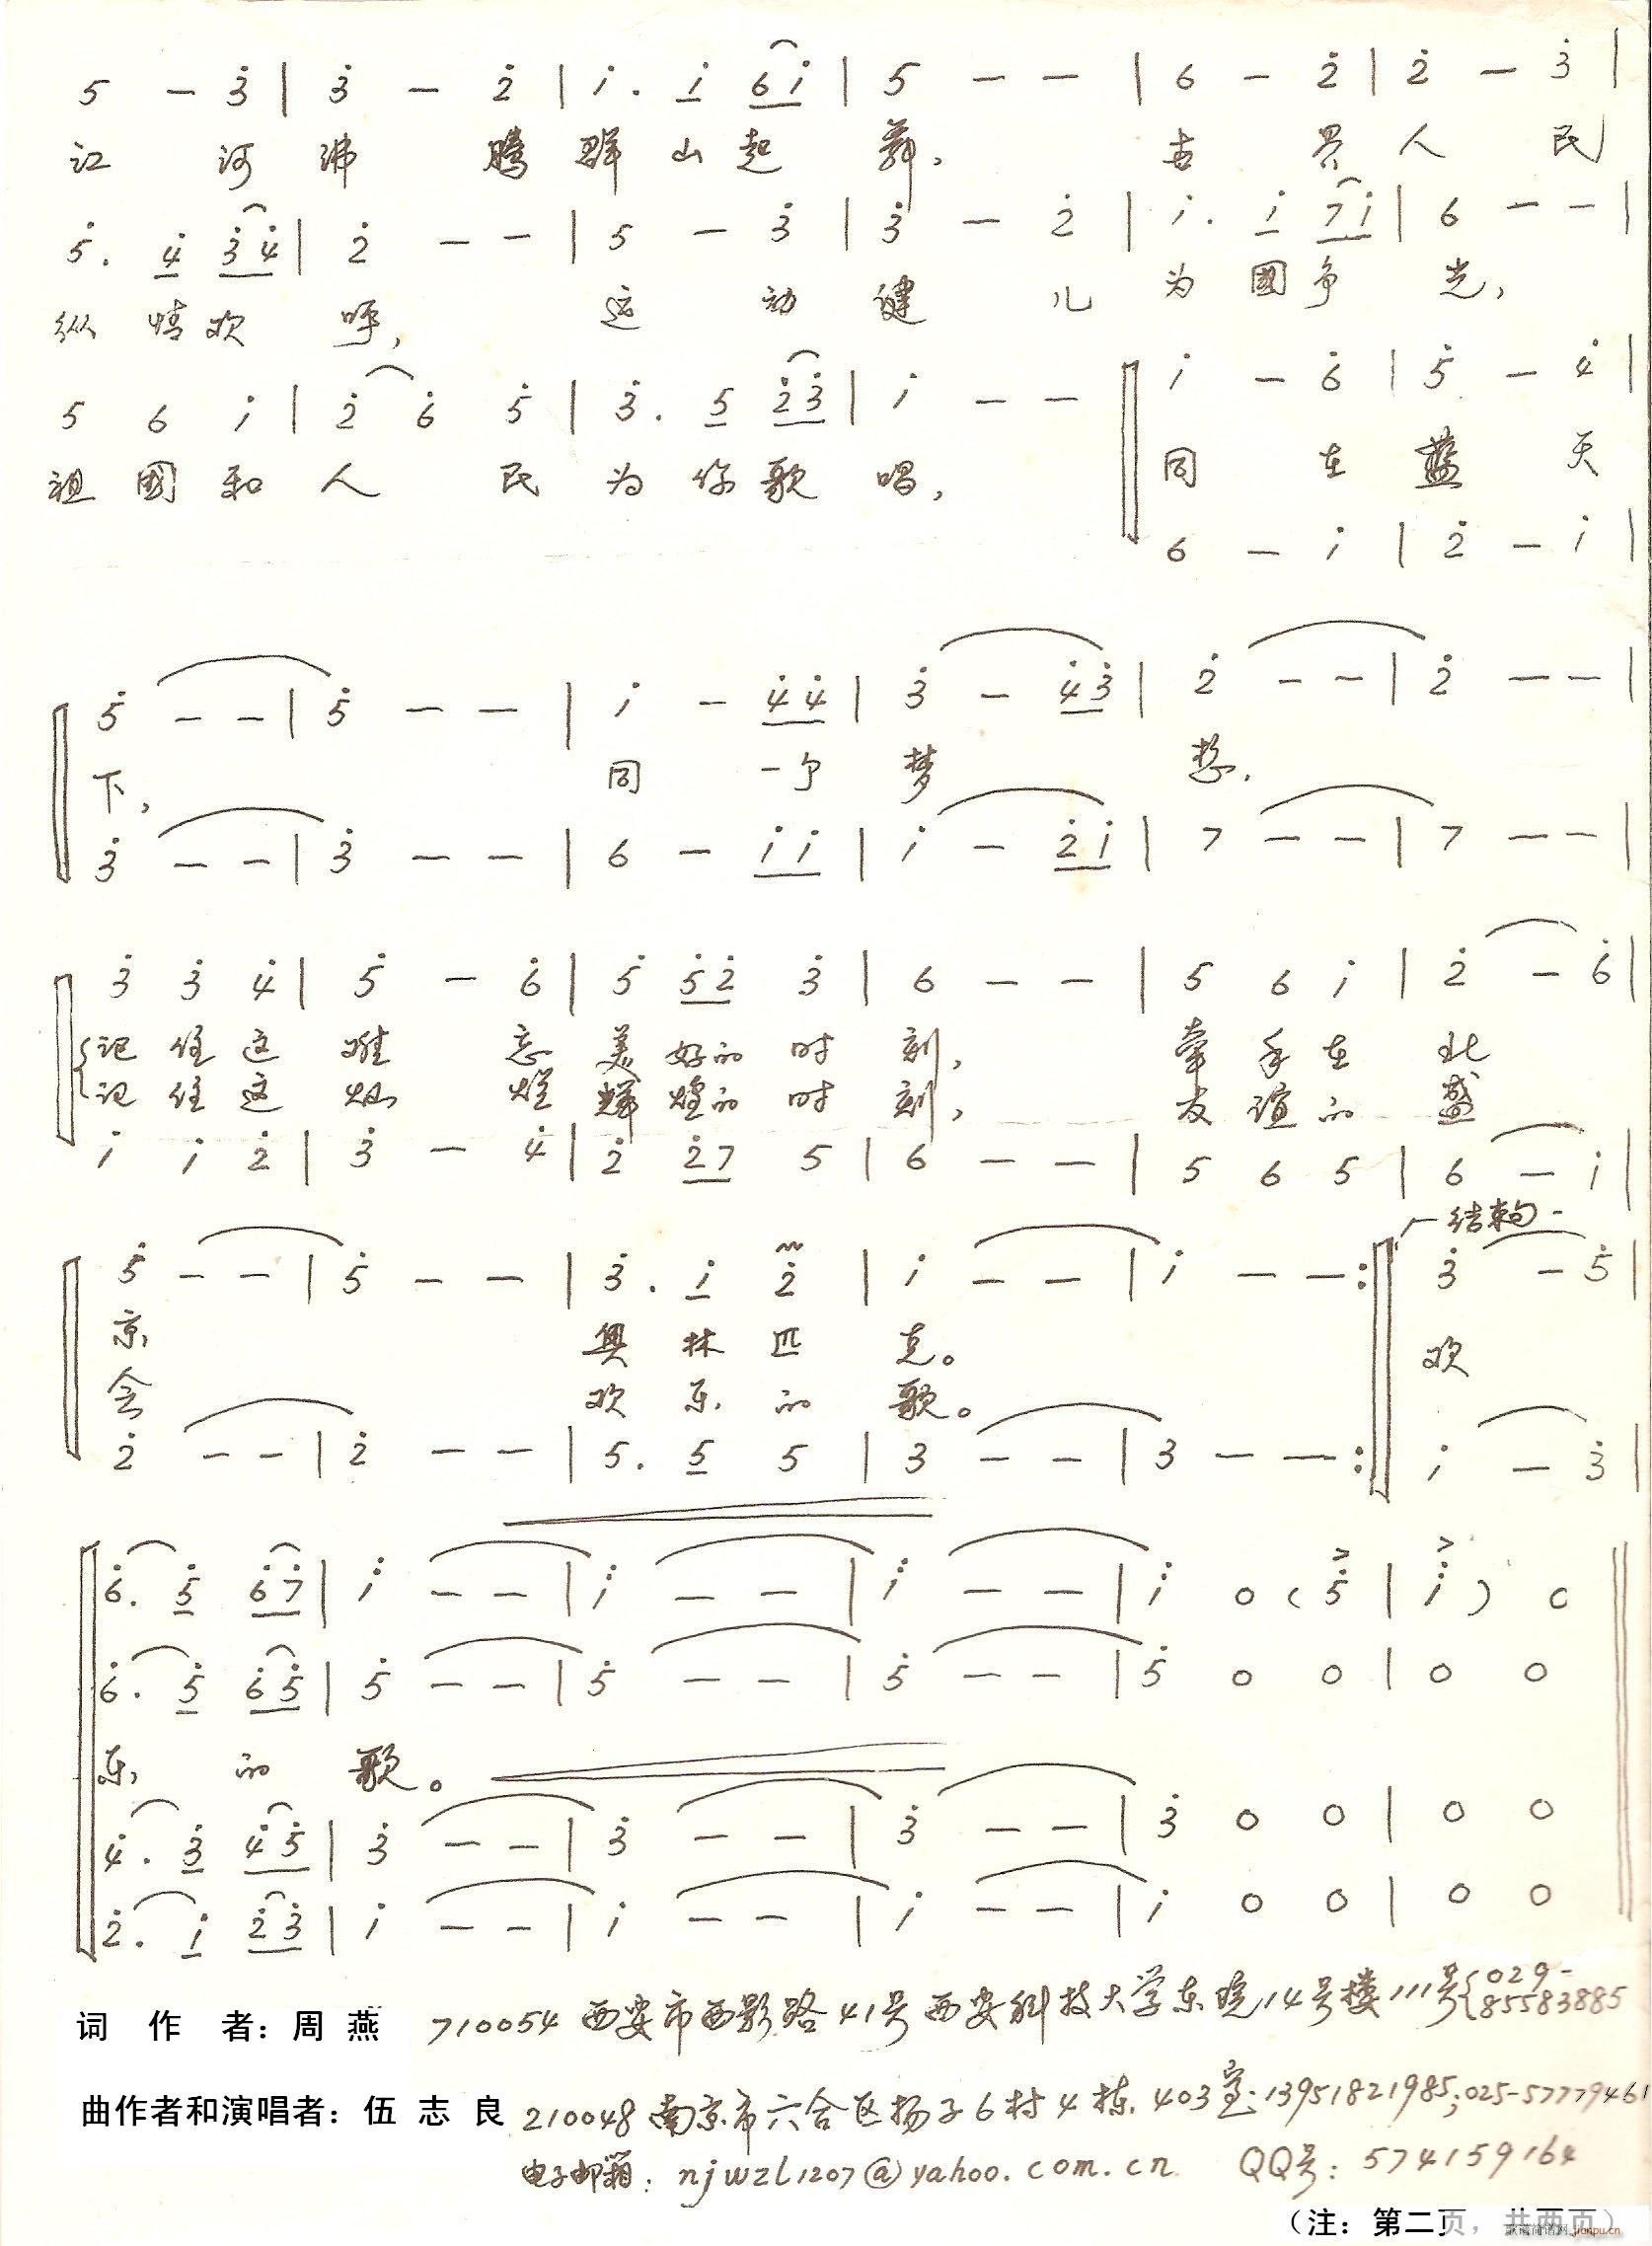 5 - 3̇ | 3̇ - 2̇ | i . i 6 i | 5 - - | 6 - 2̇ | 2̇ - 3̇ |
江 河 沸 腾 群 山 起 舞, 世 界 人 民
5̇ . 4̇ 3̇ 4̇ | 2̇ - - | 5 - 3̇ | 3̇ - 2̇ | i . i 7 i | 6 - - |
纵 情 欢 呼, 运 动 健 儿 为 國 争 光,
5 6 i | 2̇ 6̇ 5̇ | 3̇ . 5 2̇ 3̇ | i - - | i - 6̇ | 5̇ - 4̇ |
祖 國 和 人 民 为 你 歌 唱, 同 在 蓝 天
6 - i | 2̇ - i |
5̇ - - | 5̇ - - | i - 4̇ 4̇ | 3̇ - 4̇ 3̇ | 2̇ - - | 2̇ - - |
下, 同 一 个 梦 想.
3̇ - - | 3̇ - - | 6 - i i | i - 2̇ i | 7 - - | 7 - - |
3̇ 3̇ 4̇ | 5̇ - 6̇ | 5̇ 5̇ 2̇ 3̇ | 6 - - | 5 6 i | 2̇ - 6̇ |
记 住 这 难 忘 美 好 的 时 刻, 牵 手 在 北
记 住 这 灿 烂 辉 煌 的 时 刻, 友 谊 的 盛
i i 2̇ | 3̇ - 4̇ | 2̇ 2̇ 7 5 | 6 - - | 5 6 5 | 6 - i |
结束句
5̇ - - | 5̇ - - | 3̇ . i 2̇ | i - - | i - - :| 3̇ - 5̇ |
京, 奥 林 匹 克。 欢
会 欢 乐 的 歌。
2̇ - - | 2̇ - - | 5 . 5 5 | 3 - - | 3 - - :| i - 3̇ |
6̇ . 5̇ 6̇ 7̇ | i - - | i - - | i - - | i 0 ( 5̇ | i ) 0
6̇ . 5̇ 6̇ 5̇ | 5̇ - - | 5̇ - - | 5̇ - - | 5̇ 0 0 | 0 0
乐, 的 歌。
4̇ . 3̇ 4̇ 5̇ | 3̇ - - | 3̇ - - | 3̇ - - | 3̇ 0 0 | 0 0
2̇ . i 2̇ 3̇ | i - - | i - - | i - - | i 0 0 | 0 0
词 作 者：周 燕 710054 西安市西影路41号西安科技大学东院14号楼111号{029-85583885
曲作者和演唱者：伍 志 良 210048 南京市六合区扬子6村4栋.403室:13951821985;025-57779461
电子邮箱: njwzl1207@yahoo.com.cn QQ号: 574159164
（注：第二页，共两页）
歌谱简谱网 jianpu.cn